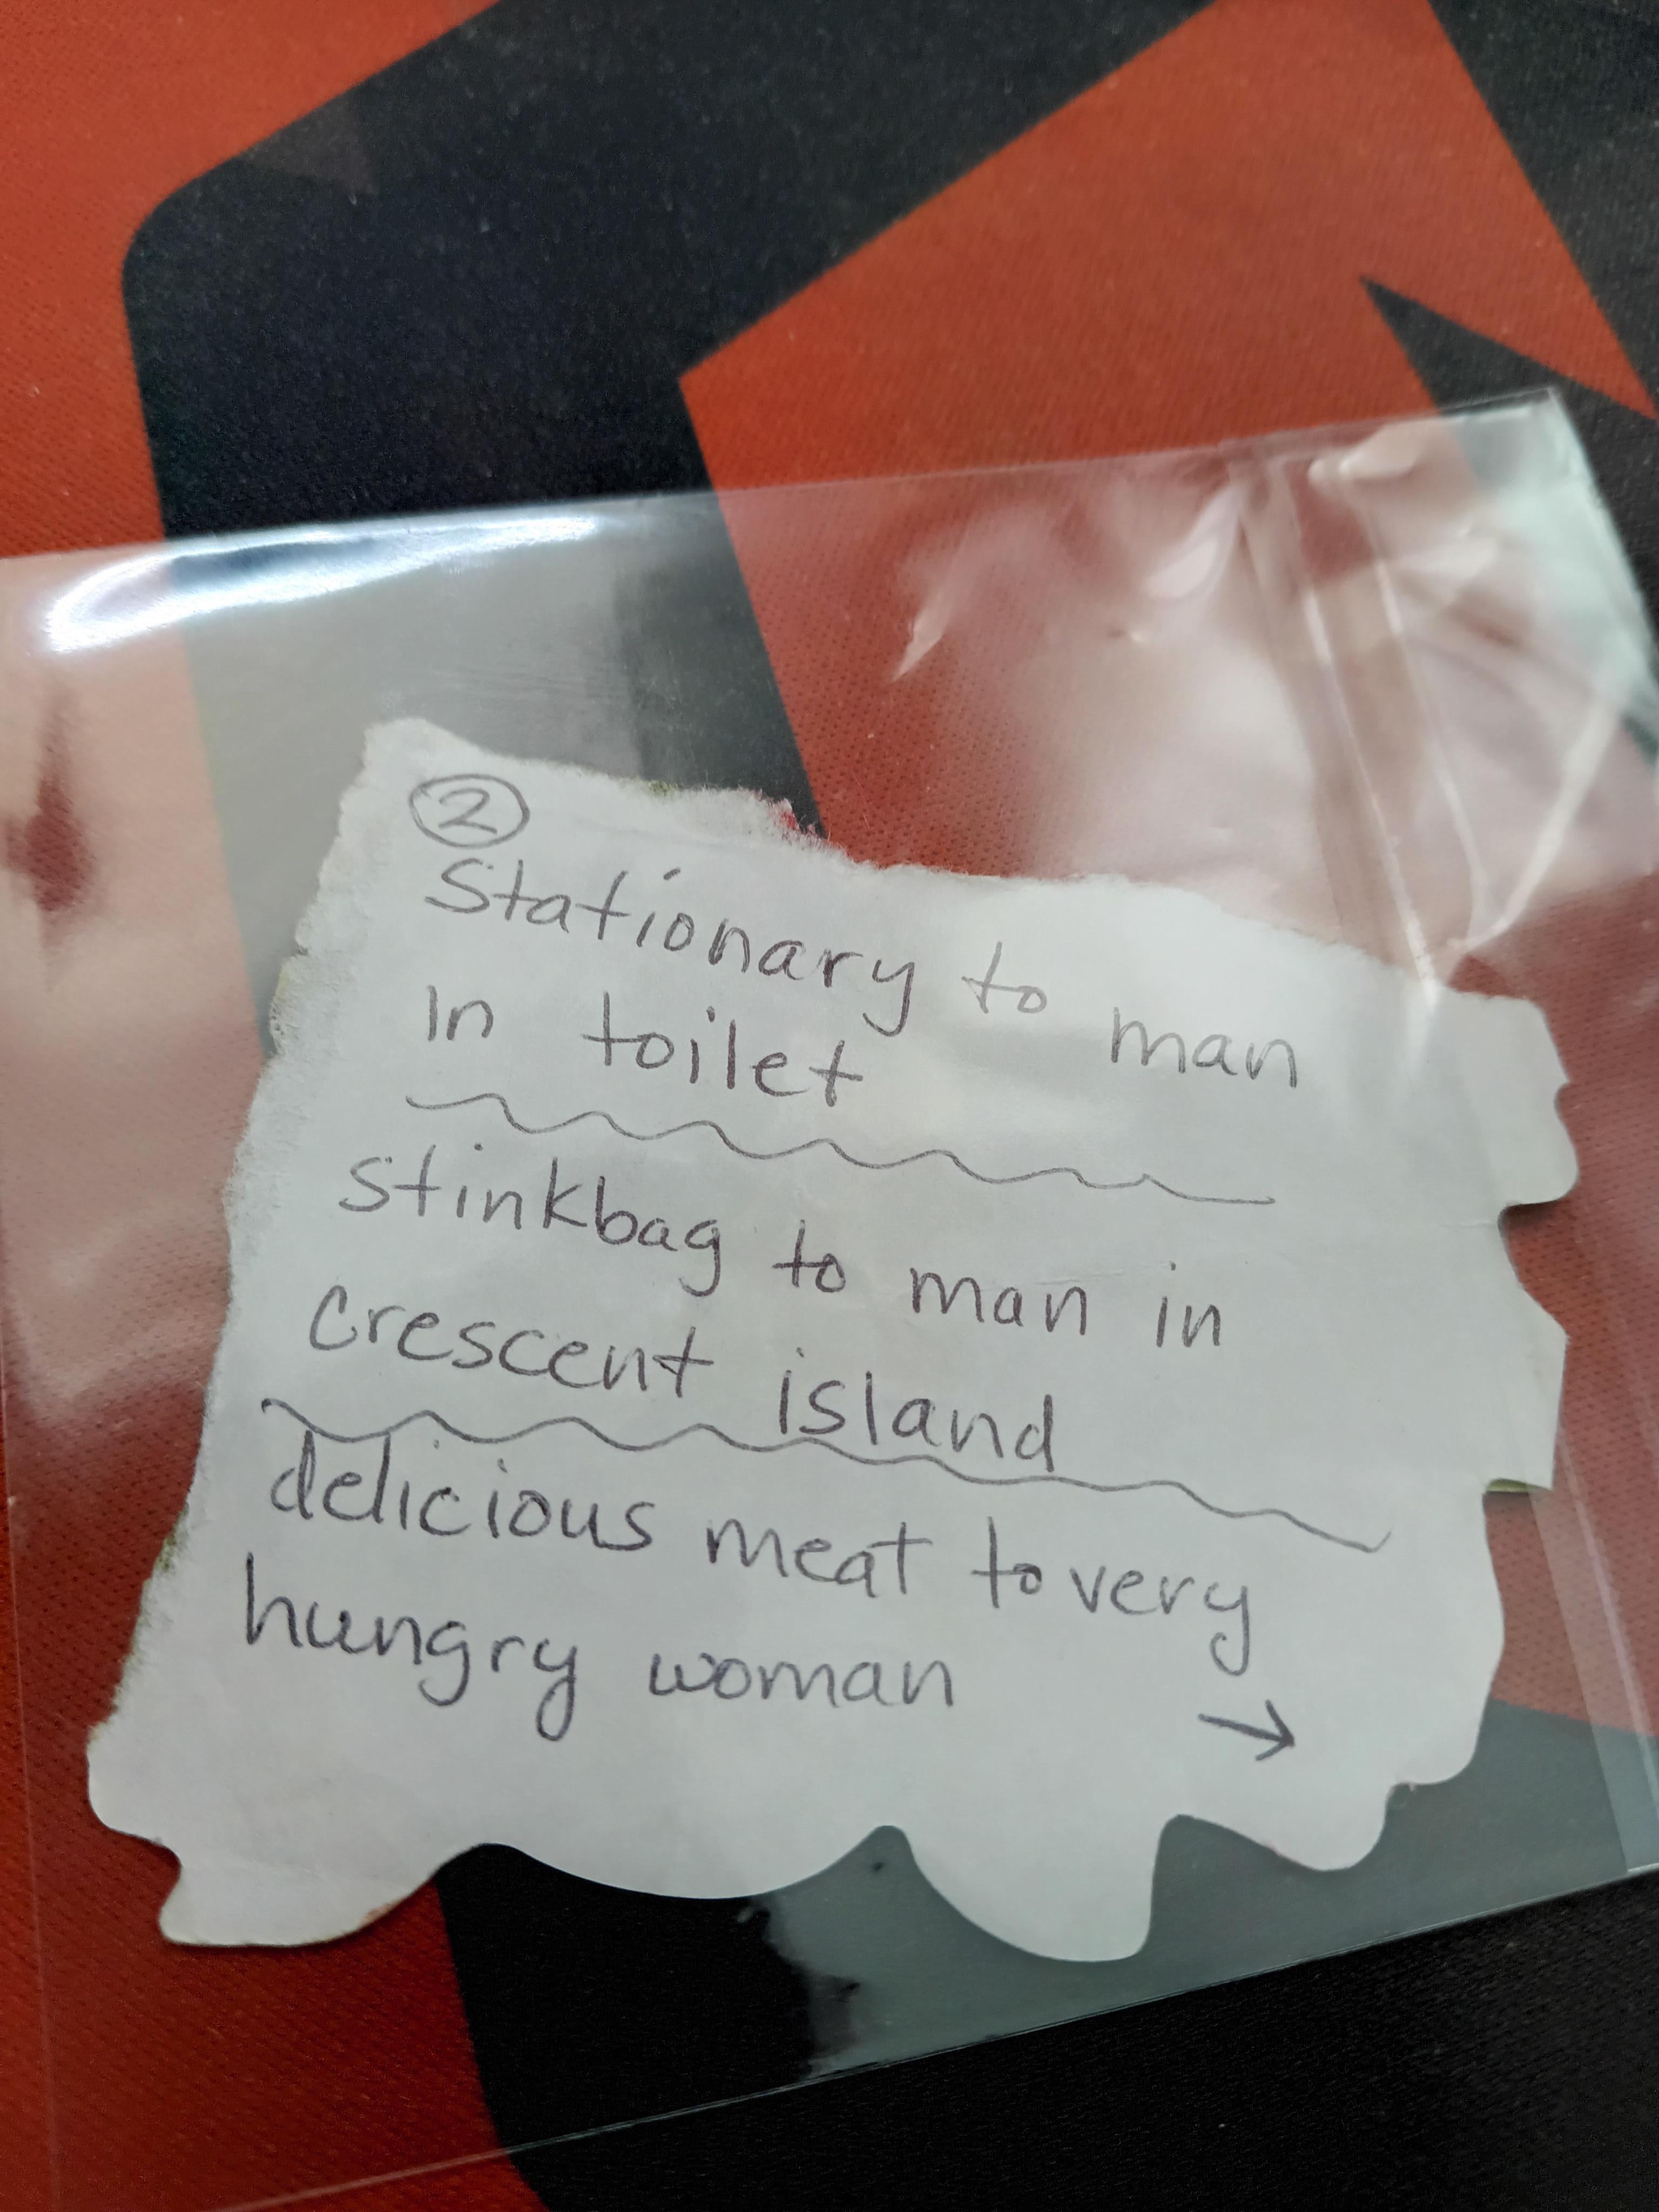 2
Stationary to man
In toilet
stinkbag to man in
crescent island
delicious meat to very
hungry woman
→